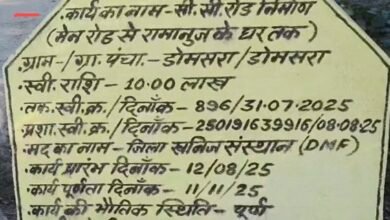 कार्य का नाम - सी.सी. रोड निर्माण
(मेन रोड से रामानुज के घर तक)
ग्राम-/ग्रा. पंचा.- डोमसरा/डोमसरा
स्वी. राशि - 10.00 लाख
तक. स्वी. क्र./ दिनाँक - 896/31.07.2025
प्रशा. स्वी. क्र./ दिनाँक - 250191639916/08.08.25
मद का नाम - जिला खनिज संस्थान (DMF)
कार्य प्रारंभ दिनाँक - 12/08/25
कार्य पूर्णता दिनाँक - 11/11/25
कार्य की भौतिक स्थिति - पूर्ण